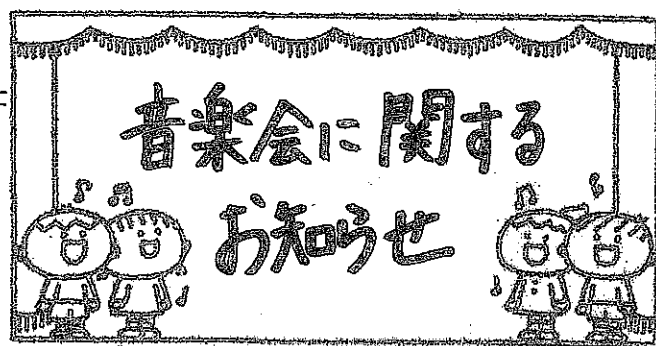 音楽会に関する
お知らせ